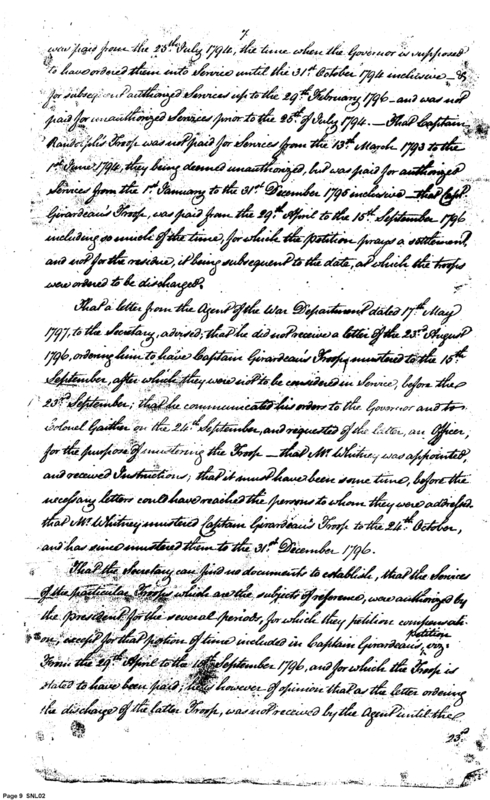 7.
was paid from the 25th July 1794, the time when the Governor is supposed
to have ordered them into Service until the 31st October 1794 inclusive – &
for subsequent authorized Services up to the 29th February 1796 – and was not
paid for unauthorized Services prior to the 25th of July 1794. – That Captain
Randolph's Troop was not paid for Services from the 13th March 1793 to the
1st June 1794, they being deemed unauthorized, but was paid for authorized
Services from the 1st January to the 31st December 1795 inclusive – that Capt.
Girardeau's Troop, was paid from the 29th April to the 15th September 1796
including so much of the time, for which the petition prays a settlement,
and not for the residue, it being subsequent to the date, at which the troops
were ordered to be discharged.
That a letter from the Agent of the War Department dated 17th May
1797, to the Secretary, advised; that he did not receive a letter of the 23d August
1796, ordering him to have Captain Girardeau's Troop mustered to the 15th
September, after which they were not to be considered in Service, before the
23d September; that he communicated his orders to the Governor and to
Colonel Gaither on the 24th September, and requested of the latter, an Officer,
for the purpose of mustering the Troop – that Mr. Whitney was appointed
and received Instructions; that it must have been some time, before the
necessary letters could have reached the persons to whom they were addressed
that Mr. Whitney mustered Captain Girardeau's Troop to the 24th October,
and has since mustered them to the 31st December 1796.
That the Secretary can find no documents to establish, that the Services
of the particular Troops which are the subjects of reference, were authorized by
the president for the several periods, for which they petition compensati-
on, except for that portion of time included in Captain Girardeau's petition, viz:
From the 29th April to the 15th September 1796, and for which the Troop is
stated to have been paid; he is however of opinion that as the letter ordering
the discharge of the latter Troop, was not received by the Agent until the
23d
Page 9 SNL02